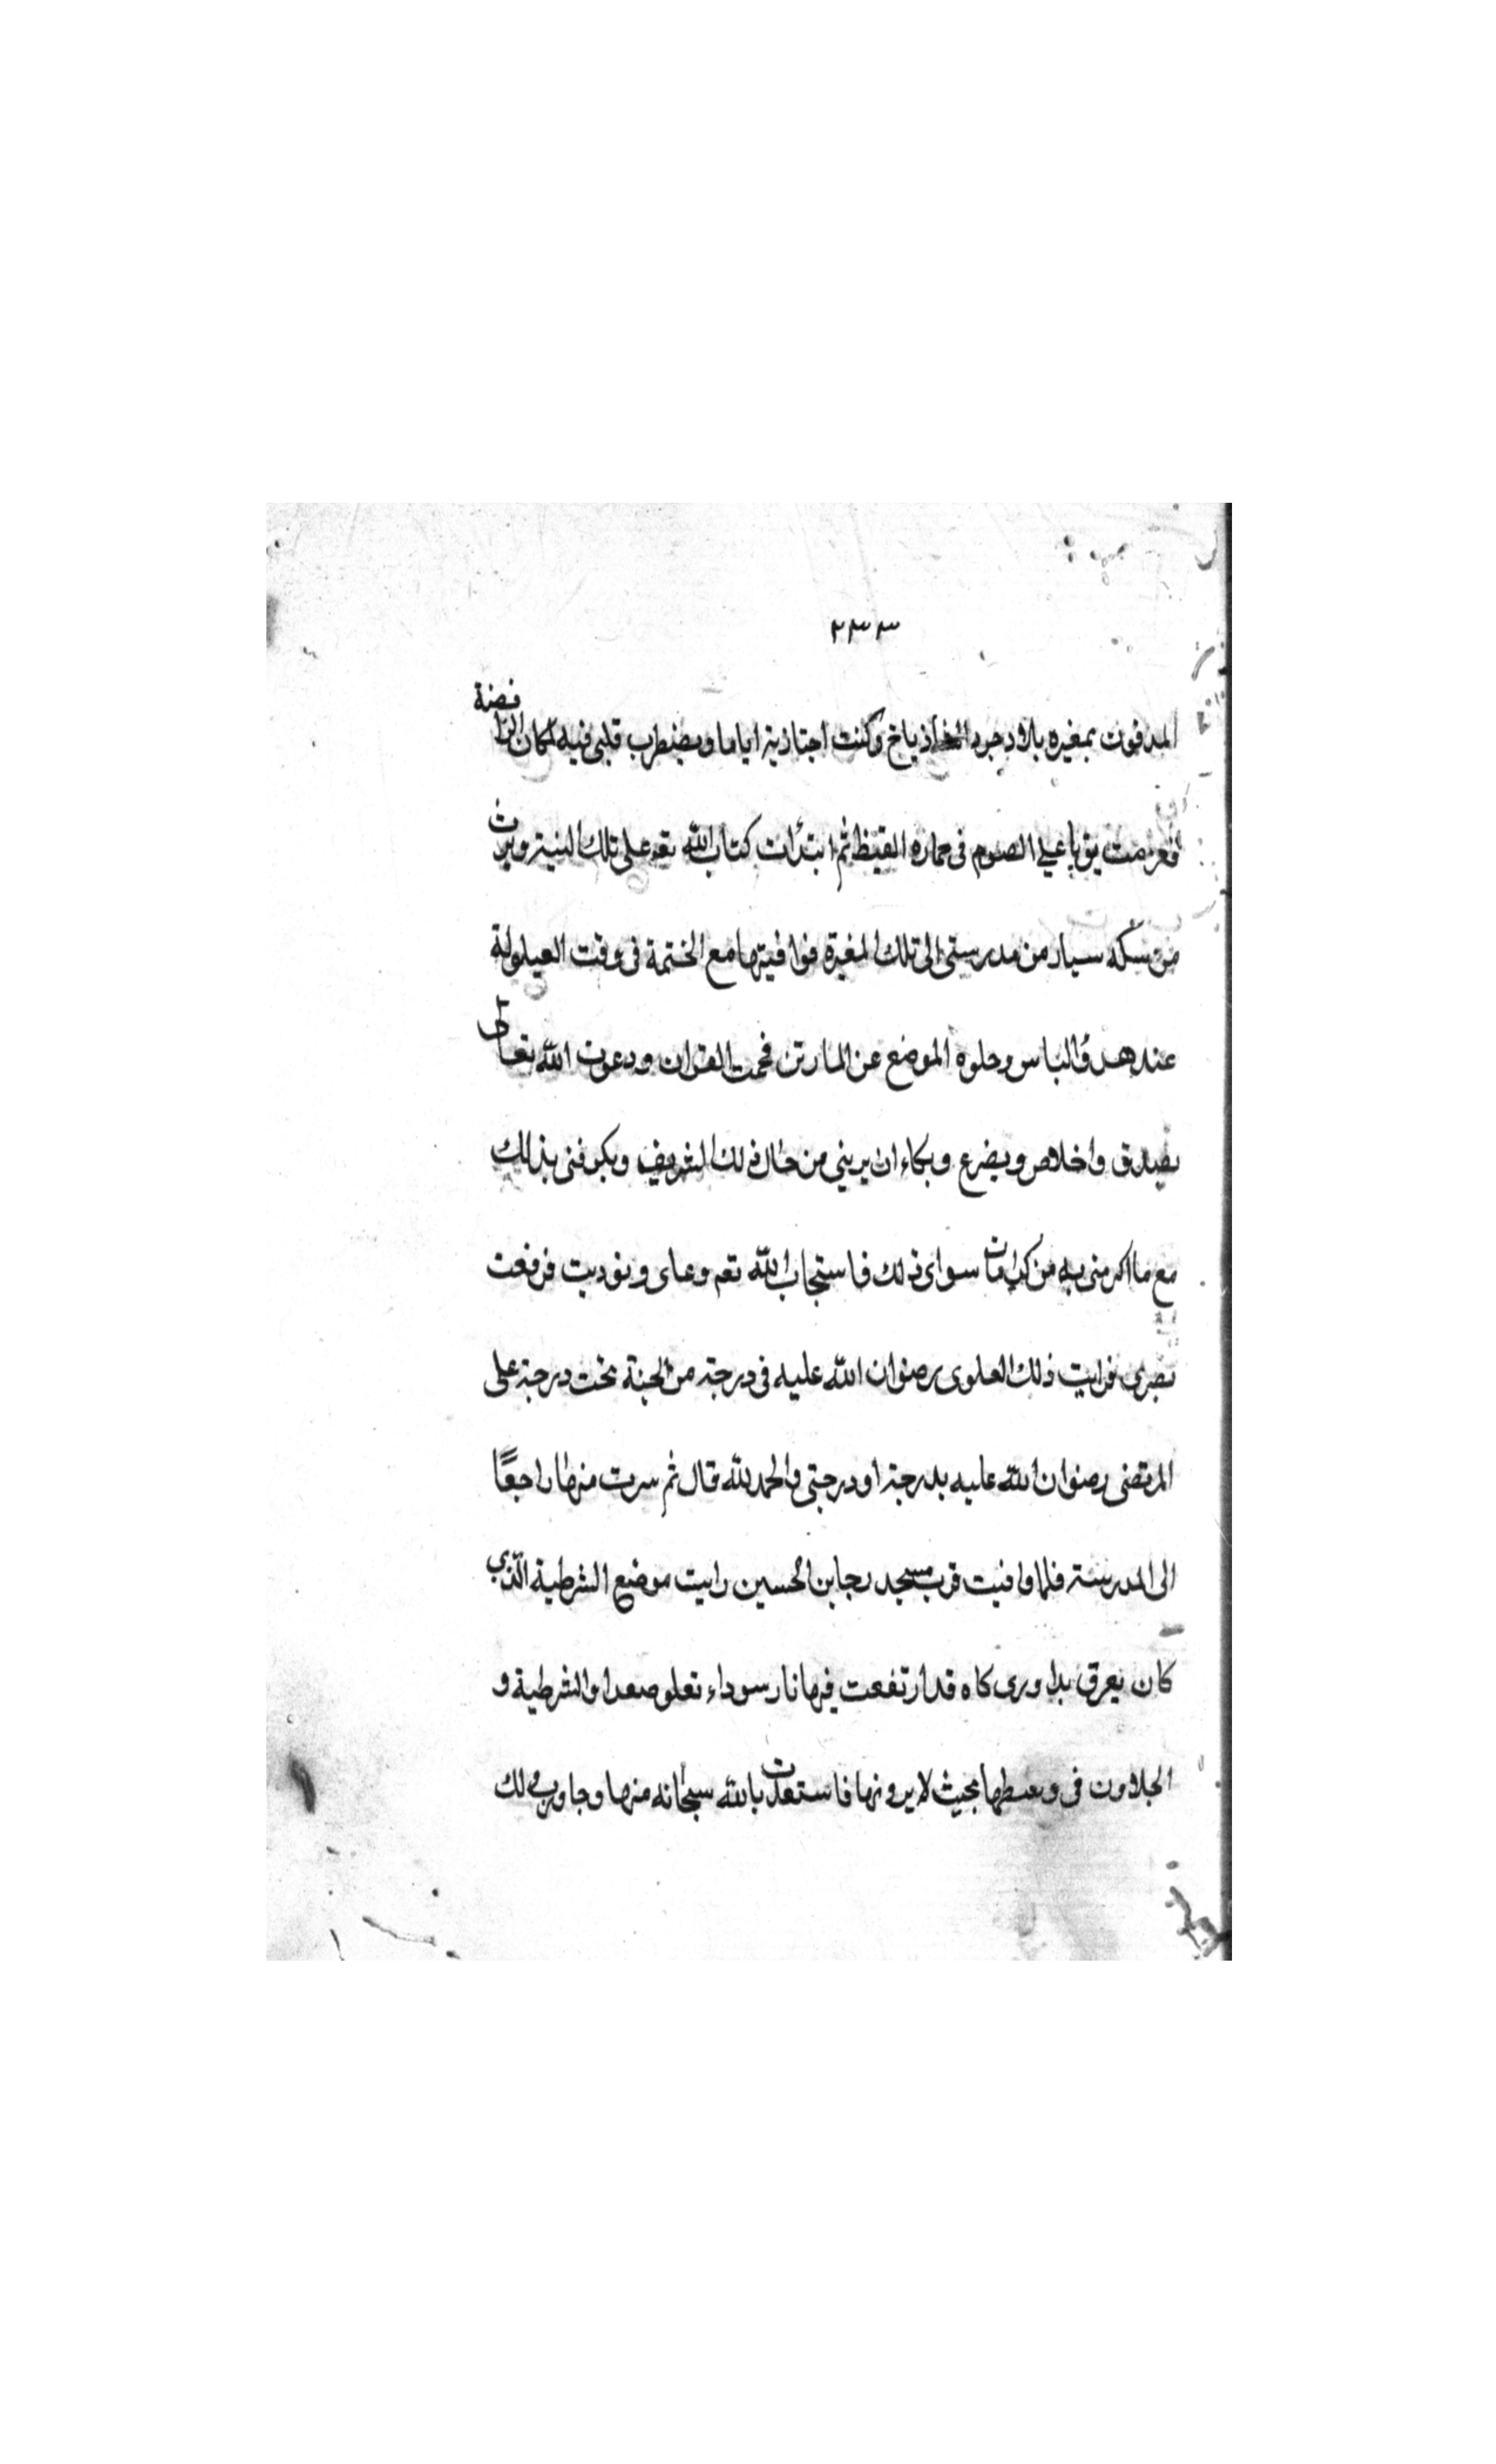 ٢٣٣
المدفون بمغيره بلاد جرد وكنت اجتاز ية اياما ويضطرب قلبى فيه لمكان الرافضة
فعزمت يوما على الصوم فى حماره القيظ ثم ابتدأت كتاب الله تعه على تلك النية وبرزت
من سكه سيار من مدرستى الى تلك المغيرة فوافيتها مع الختمة فى وقت العيلولة
عند هدؤ الناس وخلوه الموضع عن المارتن فختمت القران ودعوت الله تعالى
بصدق واخلاص وبضرع وبكاء ان يرينى من حال ذلك الشريف ويكرمنى بذلك
مع ما اكرمنى به من كرامات سواى ذلك فاستجاب الله تعم دعاى ونوديت فرفعت
بصرى فرايت ذلك العلوى رضوان الله عليه فى درجة من الجنة تحت درجة على
المرتضى رضوان الله عليه بدرجة او درجتى والحمد لله قال ثم سرت منها راجعًا
الى المدرسة فلما وافيت قرب مسجد رجا بن الحسين رايت موضع الشرطية الذى
كان يعرق بداورى كاه قد ارتفعت فيها نار سوداء تعلو صعدا والشرطية و
الجلادون فى وسطها بحيث لا يرونها فاستعذت بالله سبحانه منها وجاوب لك